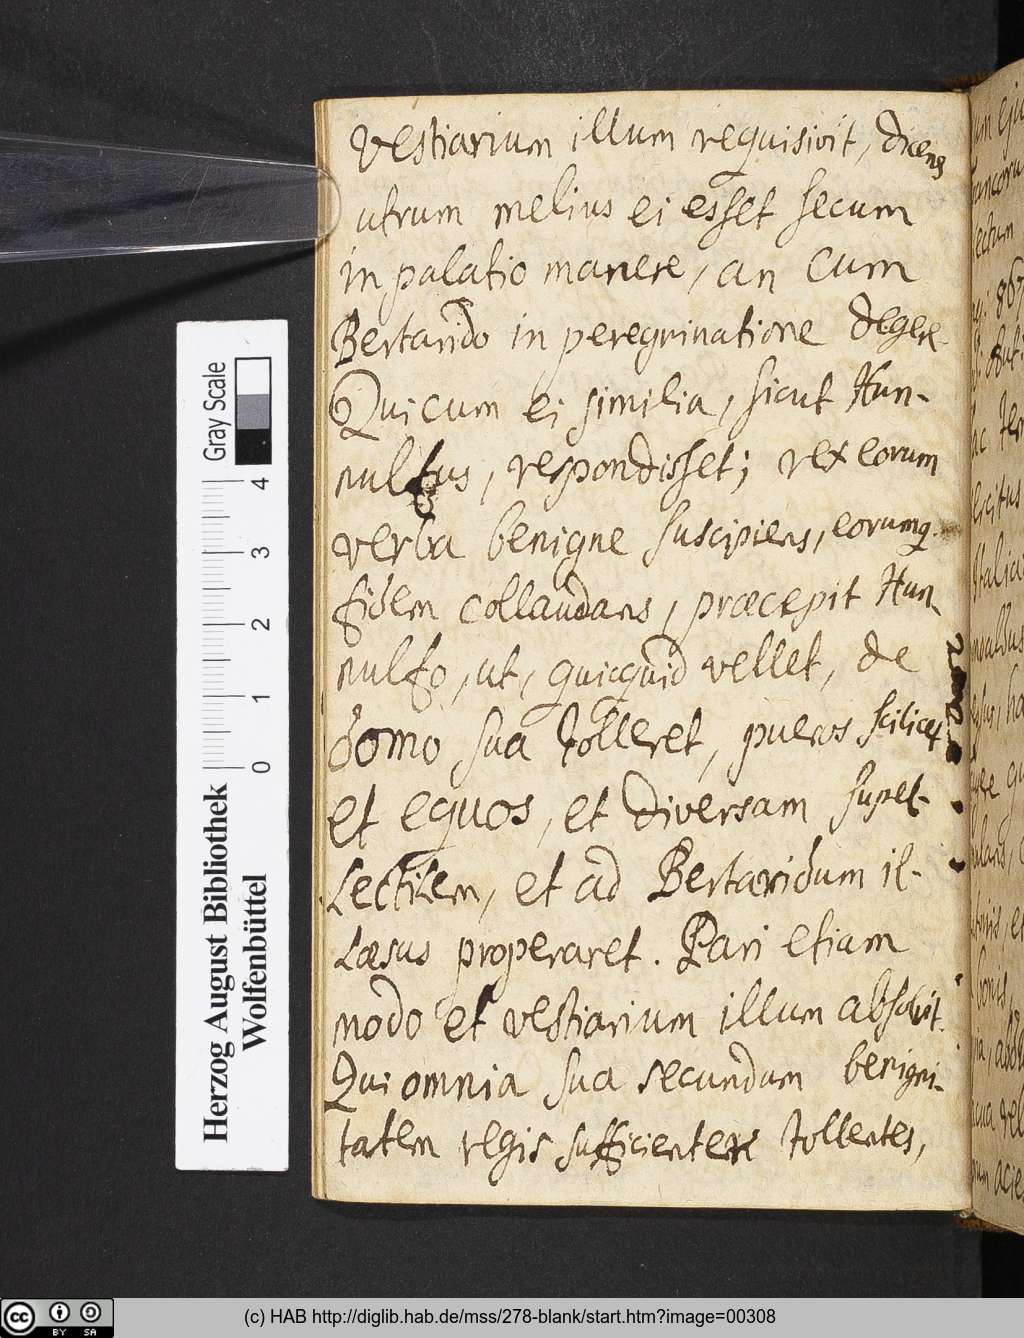 vestiarium illum requisivit, dicens
utrum melius ei esset secum
in palatio manere, an cum
Bertarido in peregrinatione degere.
Qui cum ei similia, sicut Hun-
nulfus, respondisset; rex eorum
verba benigne suscipiens, eorumq.
fidem collaudans, præcepit Hun-
nulfo, ut, quicquid vellet, de
domo sua tolleret, pueros scilicet
et equos, et diversam supel-
lectilem, et ad Bertaridum il-
læsus properaret. Pari etiam
modo et vestiarium illum absolvit.
Qui omnia sua secundum benigni-
tatem regis sufficienter tollentes,
Gray Scale
0 1 2 3 4
Herzog August Bibliothek
Wolfenbüttel
CC BY SA
(c) HAB http://diglib.hab.de/mss/278-blank/start.htm?image=00308